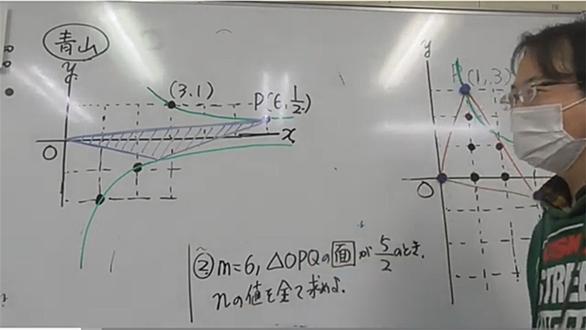 青山
y
(3.1)
P(6,1/2)
O
x
y
P(1,3)
O
② m=6, △OPQの面が5/2のとき.
nの値を全て求めよ.